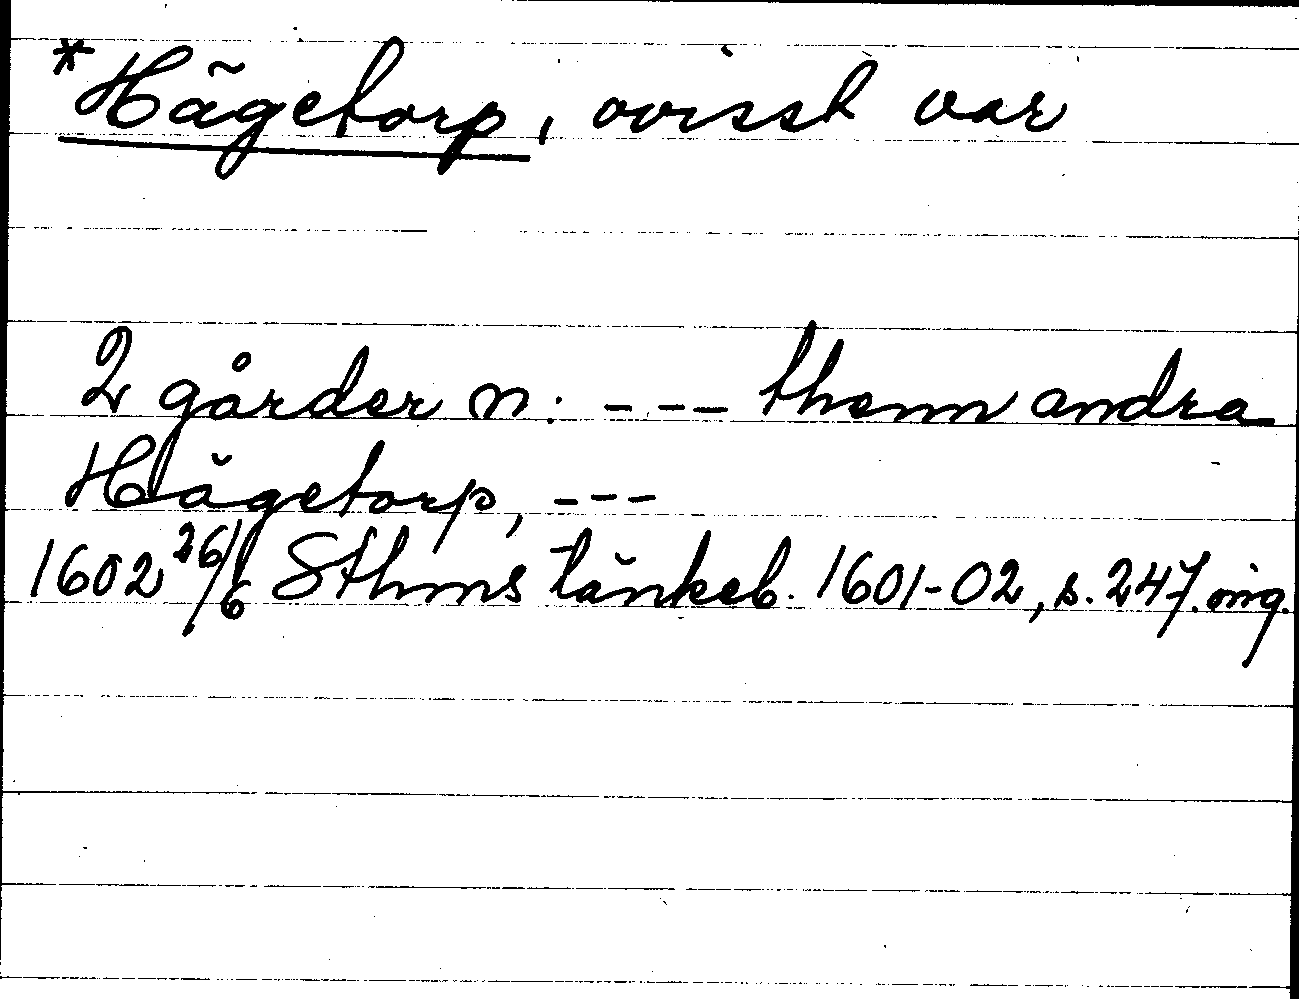 *Hägetorp, ovisst var
2 gårder n: --- thenn andra
Hägetorp, ---
1602 26/6 Sthms tänkeb. 1601-02, s. 247. orig.